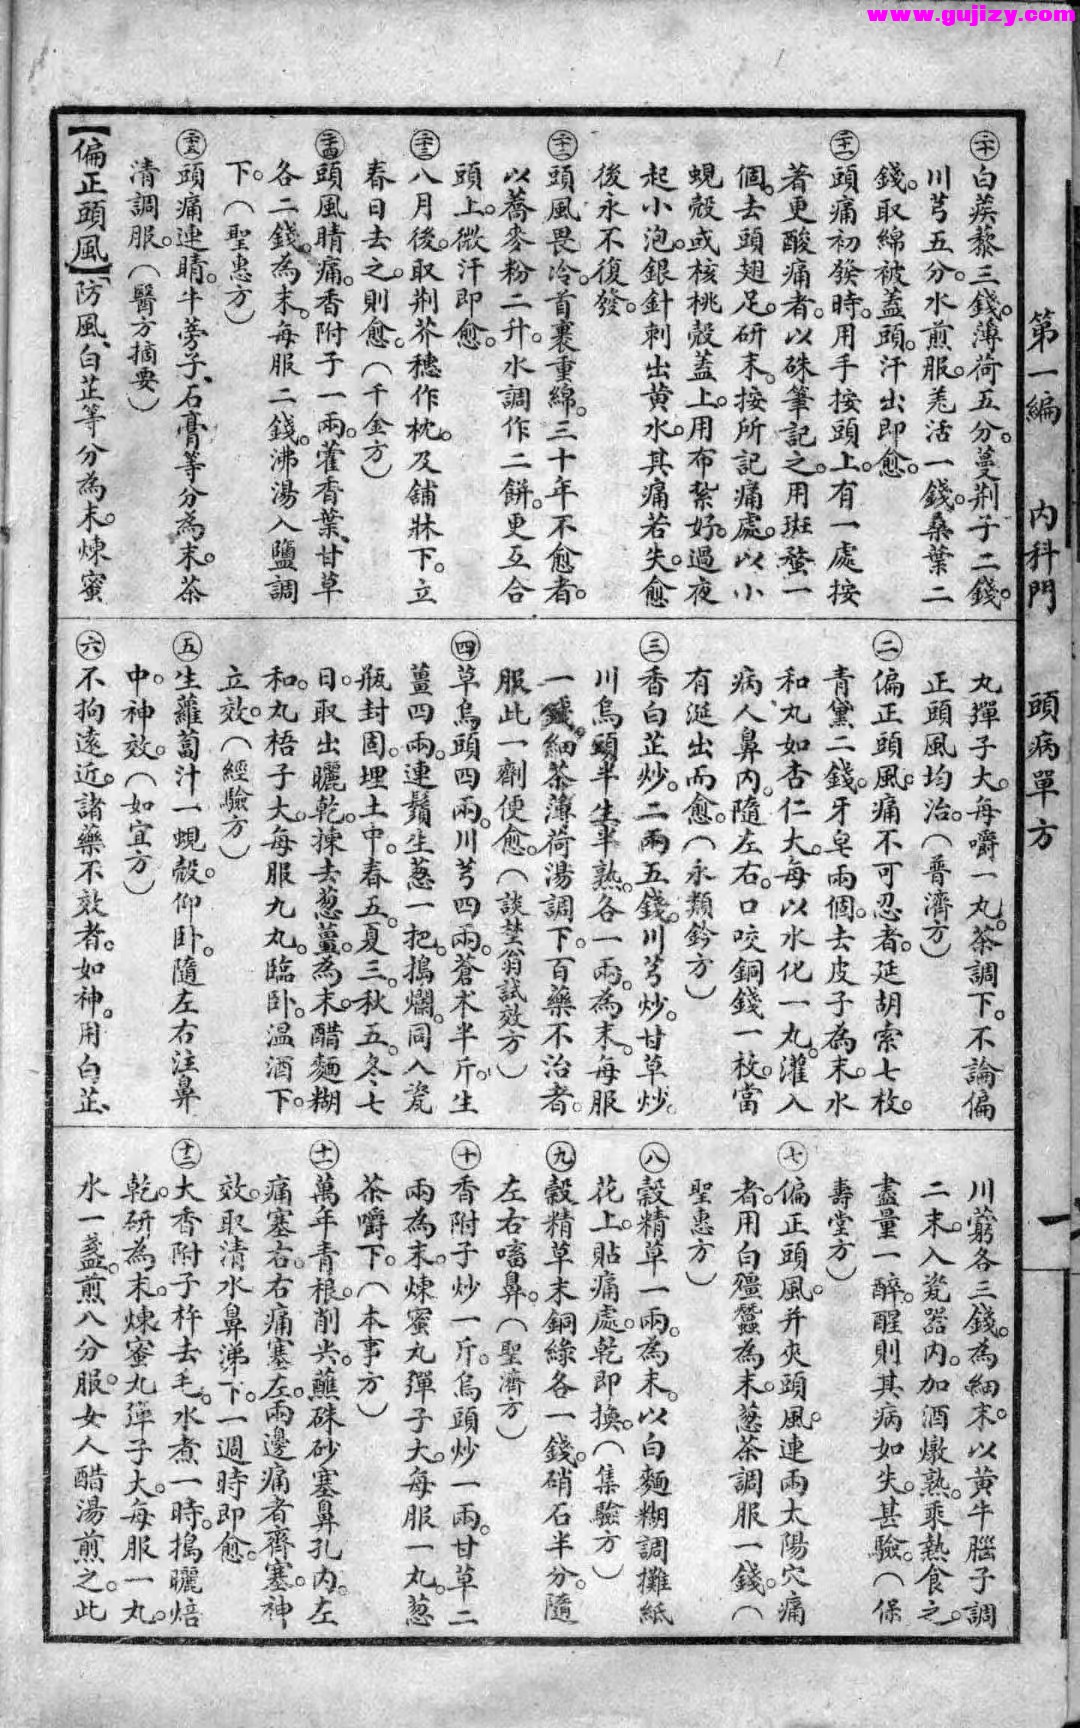 www.gujizy.com
第一編　內科門　頭病單方
㊁十白蒺藜三錢。薄荷五分。蔓荆子二錢。
川芎五分。水煎服。羌活一錢。桑葉二
錢。取綿被蓋頭。汗出即愈。
二十一頭痛初發時。用手按頭上。有一處按
著更酸痛者。以硃筆記之。用斑蝥一
個。去頭翅足。研末。按所記痛處。以小
蜆殼或核桃殼蓋上。用布紮好。過夜
起小泡。銀針刺出黄水。其痛若失。愈
後永不復發。
二十二頭風畏冷。首裹重綿。三十年不愈者。
以蕎麥粉二升。水調作二餅。更互合
頭上。微汗即愈。
二十三八月後。取荆芥穗作枕。及舖牀下。立
春日去之。則愈。（千金方）
二十四頭風睛痛。香附子一兩。藿香葉、甘草
各二錢。為末。每服二錢。沸湯入鹽調
下。（聖惠方）
二十五頭痛連睛。牛蒡子、石膏等分為末。茶
清調服。（醫方摘要）
【偏正頭風】㊀防風、白芷等分為末。煉蜜
丸彈子大。每嚼一丸。茶調下。不論偏
正頭風均治。（普濟方）
㊁偏正頭風。痛不可忍者。延胡索七枚。
青黛二錢。牙皂兩個。去皮子為末。水
和丸如杏仁大。每以水化一丸。灌入
病人鼻內。隨左右。口咬銅錢一枚。當
有涎出而愈。（永類鈐方）
㊂香白芷炒。二兩五錢。川芎炒。甘草炒。
川烏頭半生半熟。各一兩。為末。每服
一錢。細茶薄荷湯調下。百藥不治者。
服此一劑便愈。（談埜翁試效方）
㊃草烏頭四兩。川芎四兩。蒼朮半斤。生
薑四兩。連鬚生葱一把。搗爛。同入瓷
瓶封固。埋土中。春五。夏三。秋五。冬七
日。取出曬乾。揀去葱薑。為末。醋麵糊
和。丸梧子大。每服九丸。臨臥。温酒下。
立效。（經驗方）
㊄生蘿蔔汁一蜆殼。仰臥。隨左右注鼻
中。神效。（如宜方）
㊅不拘遠近。諸藥不效者。如神。用白芷、
川藭各三錢。為細末。以黄牛腦子調
二末。入瓷器內。加酒燉熟。乘熱食之。
盡量一醉。醒則其病如失。甚驗。（保
壽堂方）
㊆偏正頭風。并夾頭風連兩太陽穴痛
者。用白殭蠶為末。葱茶調服一錢。（
聖惠方）
㊇穀精草一兩。為末。以白麵糊調攤紙
花上。貼痛處。乾即換。（集驗方）
㊈穀精草末銅綠各一錢。硝石半分。隨
左右㗜鼻。（聖濟方）
㊉香附子炒一斤。烏頭炒一兩。甘草二
兩。為末。煉蜜丸彈子大。每服一丸。葱
茶嚼下。（本事方）
十一萬年青根。削尖。蘸硃砂塞鼻孔內。左
痛塞右。右痛塞左。兩邊痛者齊塞。神
效。取清水鼻涕下。一週時即愈。
十二大香附子杵去毛。水煮一時。搗曬焙
乾。研為末。煉蜜丸彈子大。每服一丸。
水一盞。煎八分服。女人醋湯煎之。此